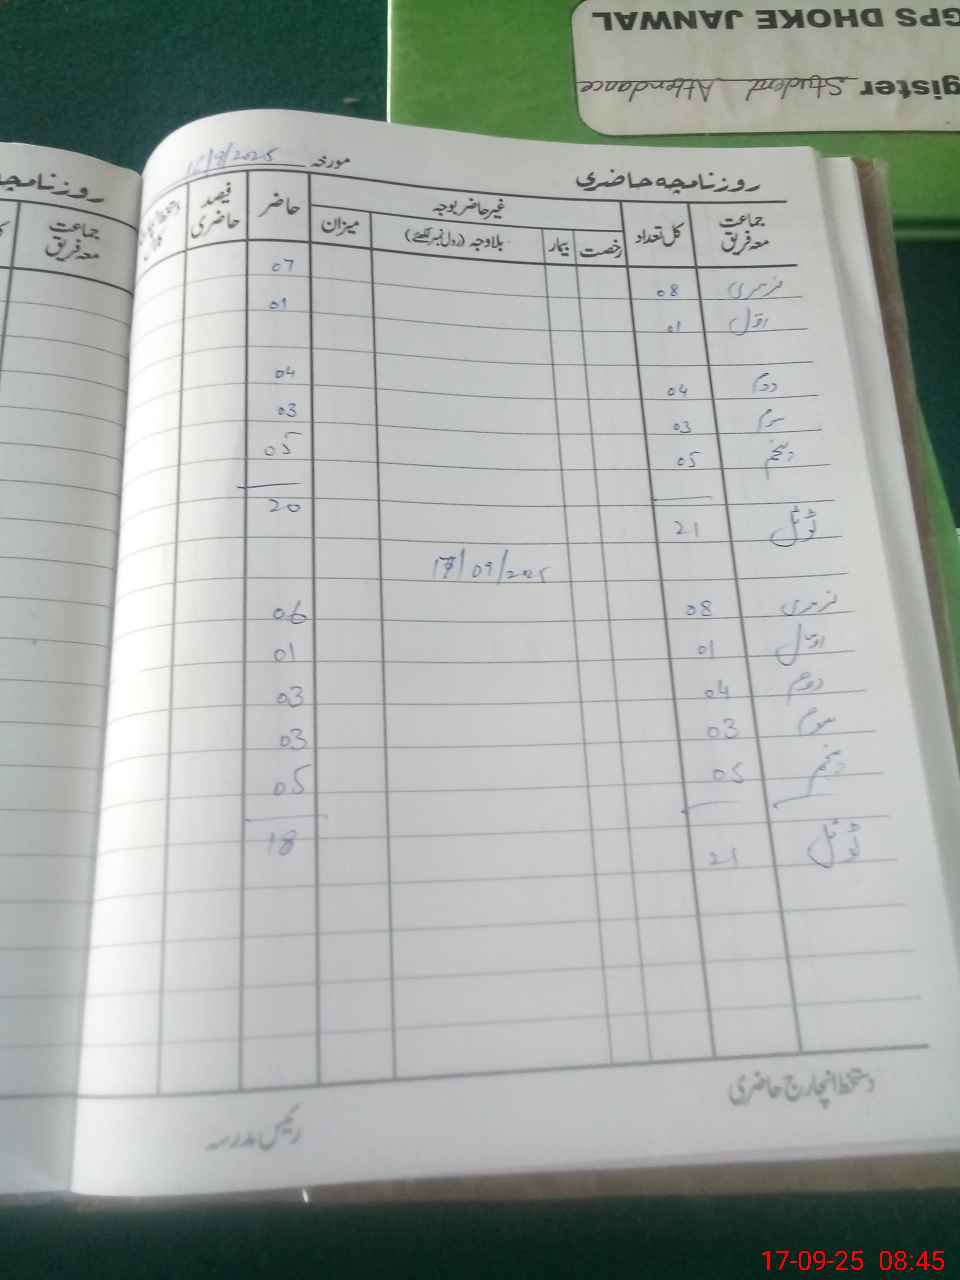 GPS DHOKE JANWAL
gister Student Attendance
روزنامچہ حاضری
مورخہ 16/9/2025
جماعت معہ فریق کل تعداد غیر حاضر بوجہ حاضر فیصد حاضری
رخصت بیمار بلاوجہ (رول نمبر لکھئے) میزان
نرسری 08 07
اوّل 01 01
دوم 04 04
سوم 03 03
پنجم 05 05
ٹوٹل 21 20
17/09/2025
نرسری 08 06
اوّل 01 01
دوم 04 03
سوم 03 03
پنجم 05 05
ٹوٹل 21 18
دستخط انچارج حاضری
رئیس مدرسہ
روزنامچہ
جماعت معہ فریق
17-09-25 08:45